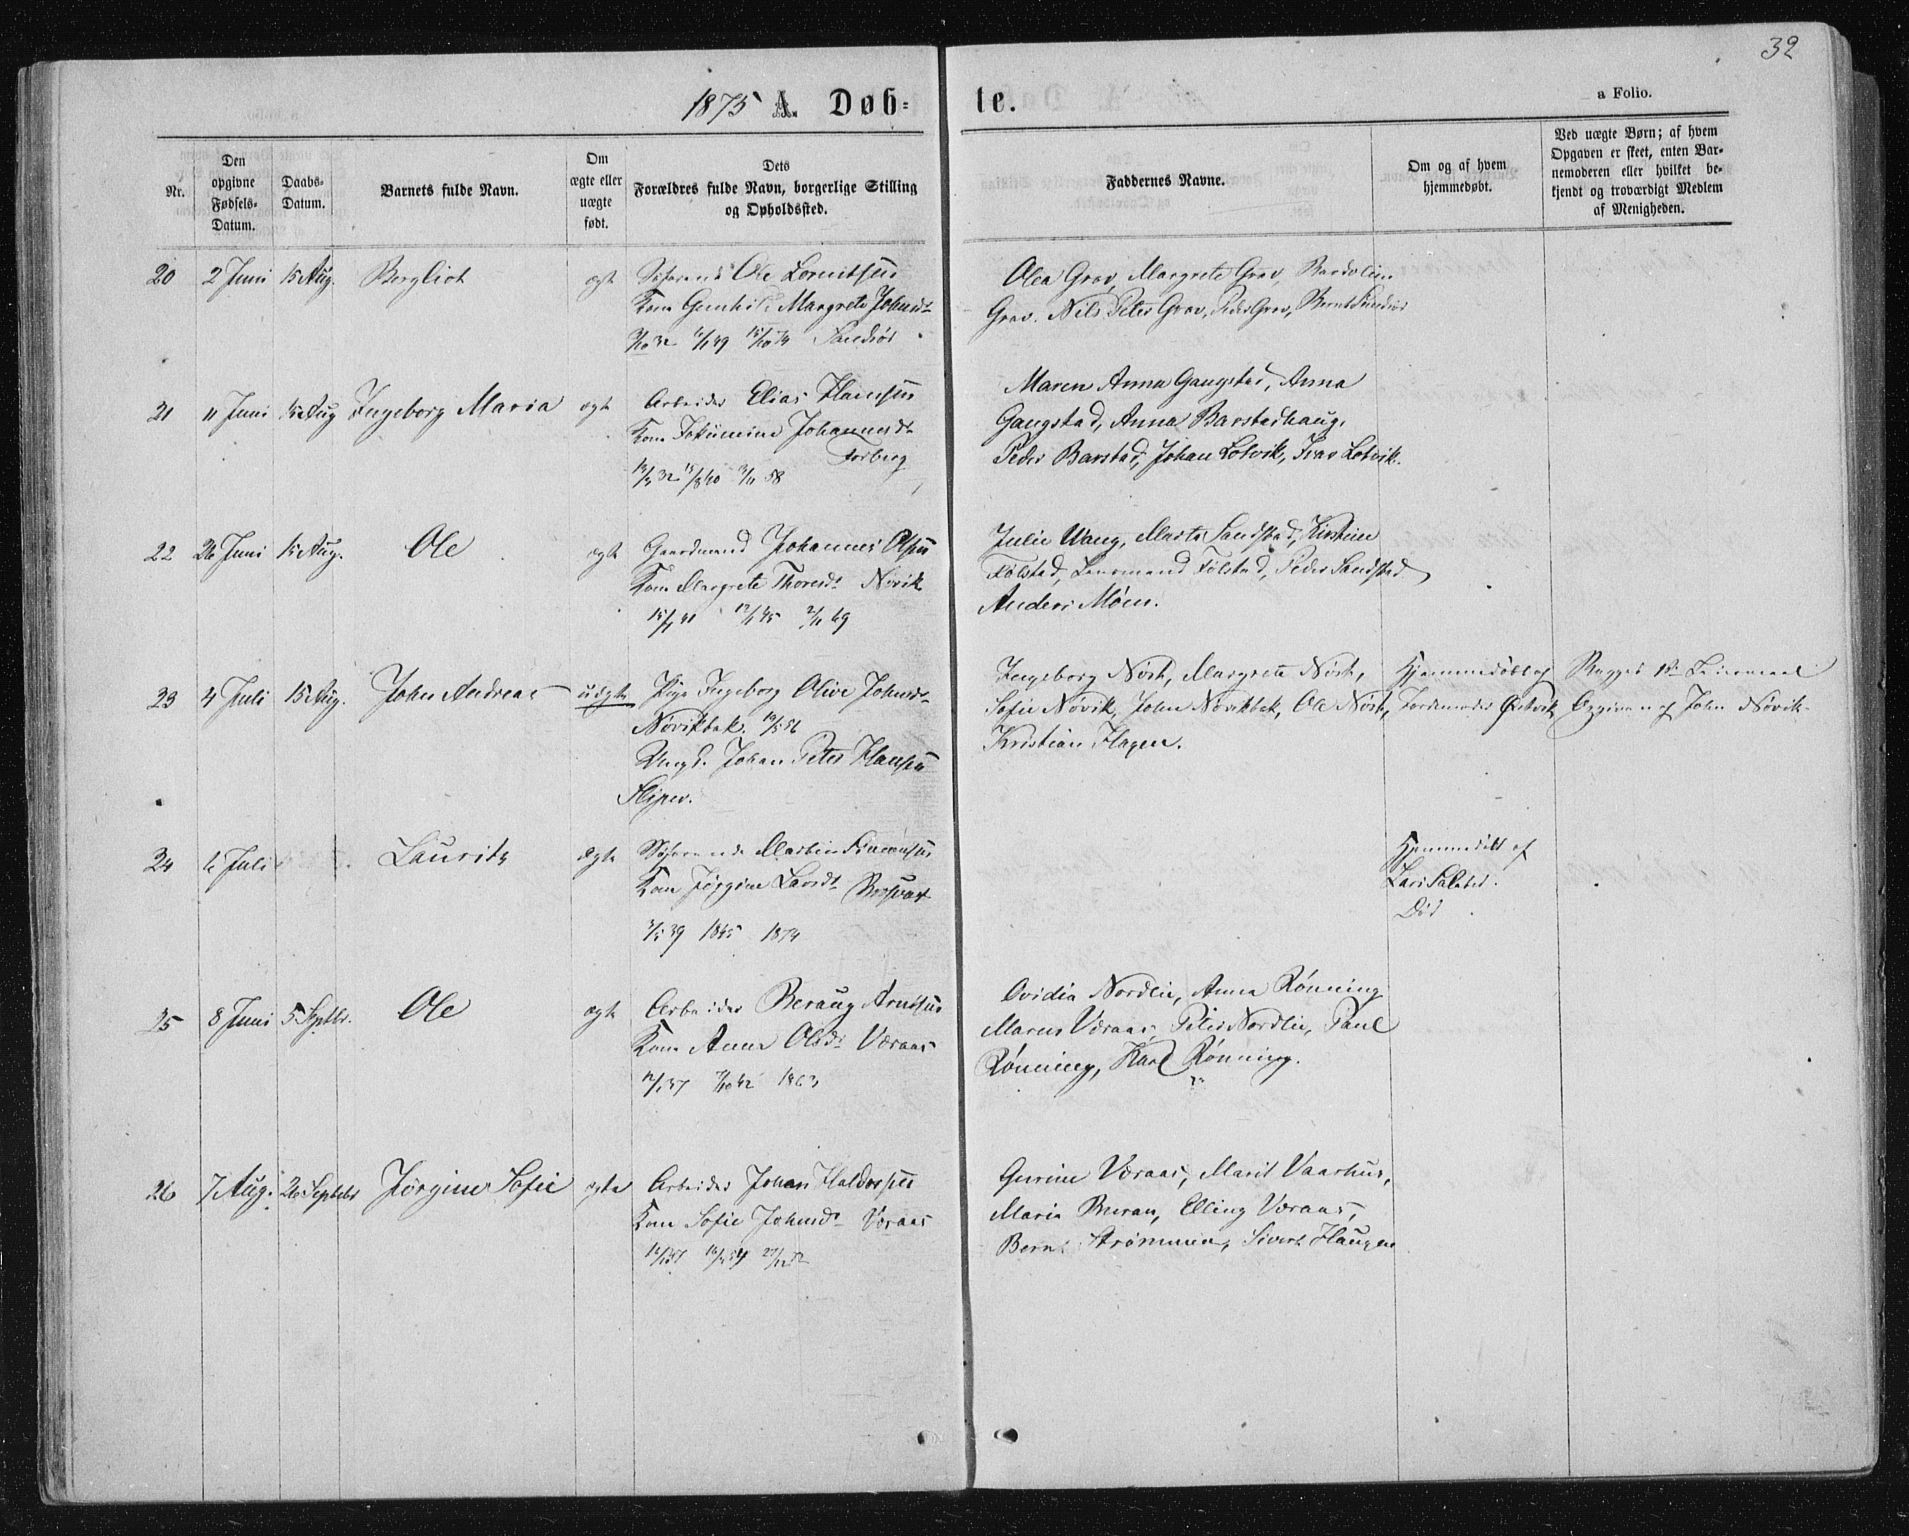 32
1875 A. Døb- te.
a Folio.
Nr.
Den opgivne Fødsels-Datum.
Daabs-Datum.
Barnets fulde Navn.
Om ægte eller uægte født.
Dets Forældres fulde Navn, borgerlige Stilling og Opholdssted.
Faddernes Navne.
Om og af hvem hjemmedøbt.
Ved uægte Børn; af hvem Opgaven er skeet, enten Barnemoderen eller hvilket bekjendt og troværdigt Medlem af Menigheden.
20 2 Juni 15 Aug. Bergliot ægte Ole Lornitsen
Kone Gunhild Margrete Johnsdt
Sandsør
Olea Grav, Margrete Grav,
Grav. Nils Peter Grav, Peder Grav, Bernt
21 11 Juni 15 Aug Ingeborg Maria ægte Arbeider Elias Hansen
Kone Johannesdt
Forberg
58
Maren Anna Gangstad, Anna
Gangstad, Anna Barstadhaug,
Peder Barstad, Johan Lotvik, Lotvik.
22 26 Juni 15 Aug. Ole ægte Gaardmand Johannes Olsen
Kone Margrete Thoresdt Nøvik
Julie Wang, Marta Sandstad, Kirstine
Følstad, Lensmand Følstad, Peder Sandstad
Anders Møen.
23 4 Juli 15 Aug. John Andreas uægte Pige Ingeborg Olive Johnsdt
Nøvikbak.
Ungk. Johan Peter Hansen
Sliper.
Ingeborg Nøst, Margrete Nøst,
Sofie Nøvik, John Nøvikbak, Ole Nøst,
Kristian Hagen.
Hjemmedøbt af
Jordemoder
Begges 1ste Leiermaal
Opgiven af John Nøvik
24 6 Juli Lauritz ægte Martin Simonsen
Kone Jørgine Larsdt
1845 1874
Hjemmedøbt af
Lars
Død
25 8 Juni 5 Septbr. Ole ægte Arbeider Beraug Arntsen
Kone Anna Olsdt Væraas
1863
Ovidia Nordlie, Anna Rønning
Maren Væraas, Peter Nordlie, Paul
Rønning, Karl Rønning.
26 7 Aug. 26 Septebr Jørgine Sofie ægte Arbeider Johan Haldorsen
Kone Sofie Johnsdt Væraas
Gurine Væraas, Marit Vaarhus,
Maria Buran, Elling Væraas,
Bernt Strømmen, Sivert Haugan